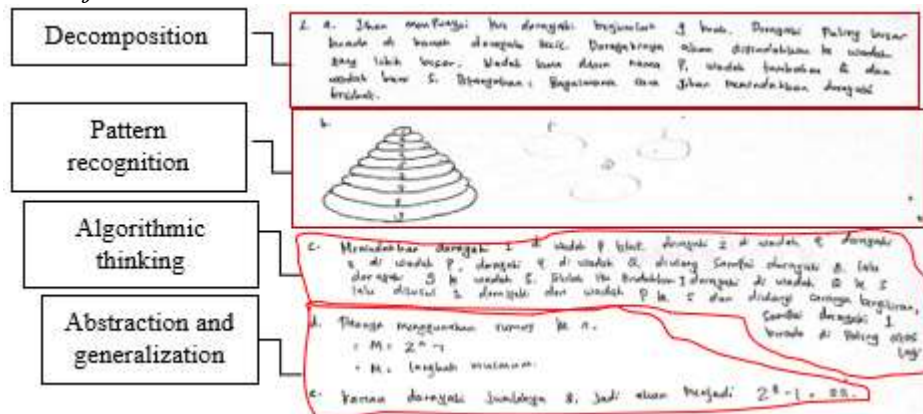 Decomposition
Pattern
recognition
Algorithmic
thinking
Abstraction and
generalization
2. a. Jihan mempunyai kue dorayaki berjumlah 9 buah. Dorayaki Paling besar
berada di bawah dorayaki kecil. Dorayakinya akan dipindahkan ke wadah
yang lebih besar. Wadah lama diberi nama P, wadah tambahan Q dan
wadah baru S. Bagaimana cara Jihan memindahkan dorayaki
tersebut.
b.
c. Memindahkan dorayaki 1 di wadah dorayaki 2 di wadah dorayaki
di wadah P, dorayaki 4 di wadah Q, diulang sampai dorayaki 8. lalu
dorayaki 9 ke wadah S. Setelah itu pindahkan dorayaki di wadah Q ke S
lalu disusul dorayaki dari wadah P ke S dan diulangi
sampai dorayaki 1
berada di paling atas
lagi
d. menggunakan rumus ke n.
= M = 2ⁿ - 1
= M = langkah minimum
e. Karena dorayaki jumlahnya 8, jadi akan menjadi 2⁸ - 1 =